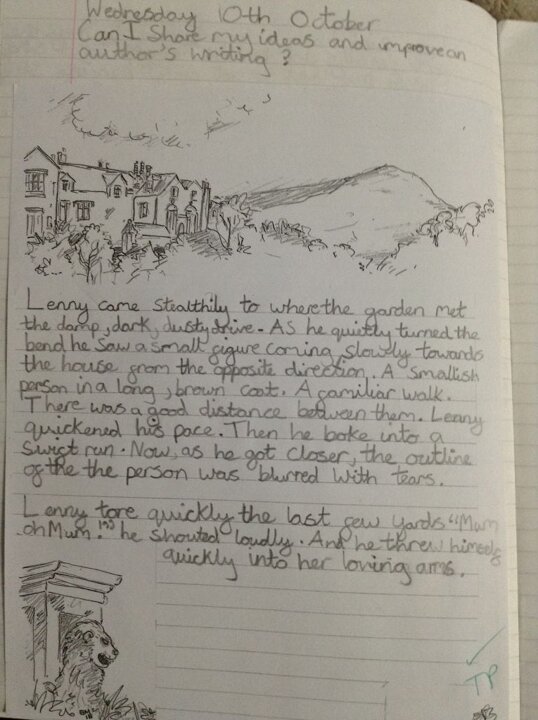 Wednesday 10th October
Can I Share my ideas and improve an
author's writing?
Lenny came stealthily to where the garden met
the damp, dark, dusty drive. As he quietly turned the
bend he saw a small figure coming slowly towards
the house from the opposite direction. A smallish
person in a long, brown coat. A familiar walk.
There was a good distance between them. Lenny
quickened his pace. Then he boke into a
swift run. Now, as he got closer, the outline
of the the person was blurred with tears.
Lenny tore quickly the last few yards "Mum
oh Mum!" he shouted loudly. And he threw himself
quickly into her loving arms.
TP